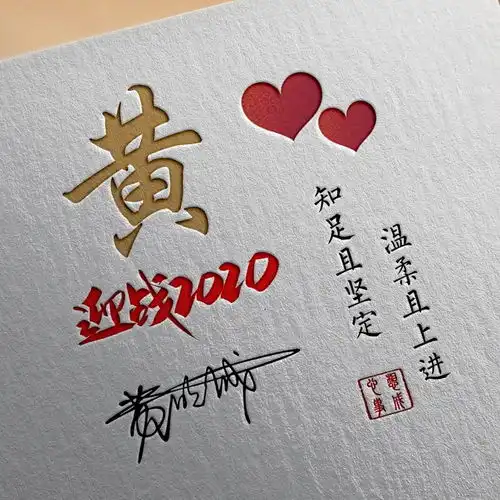 黄
迎战2020
温柔且上进
知足且坚定
心想事成